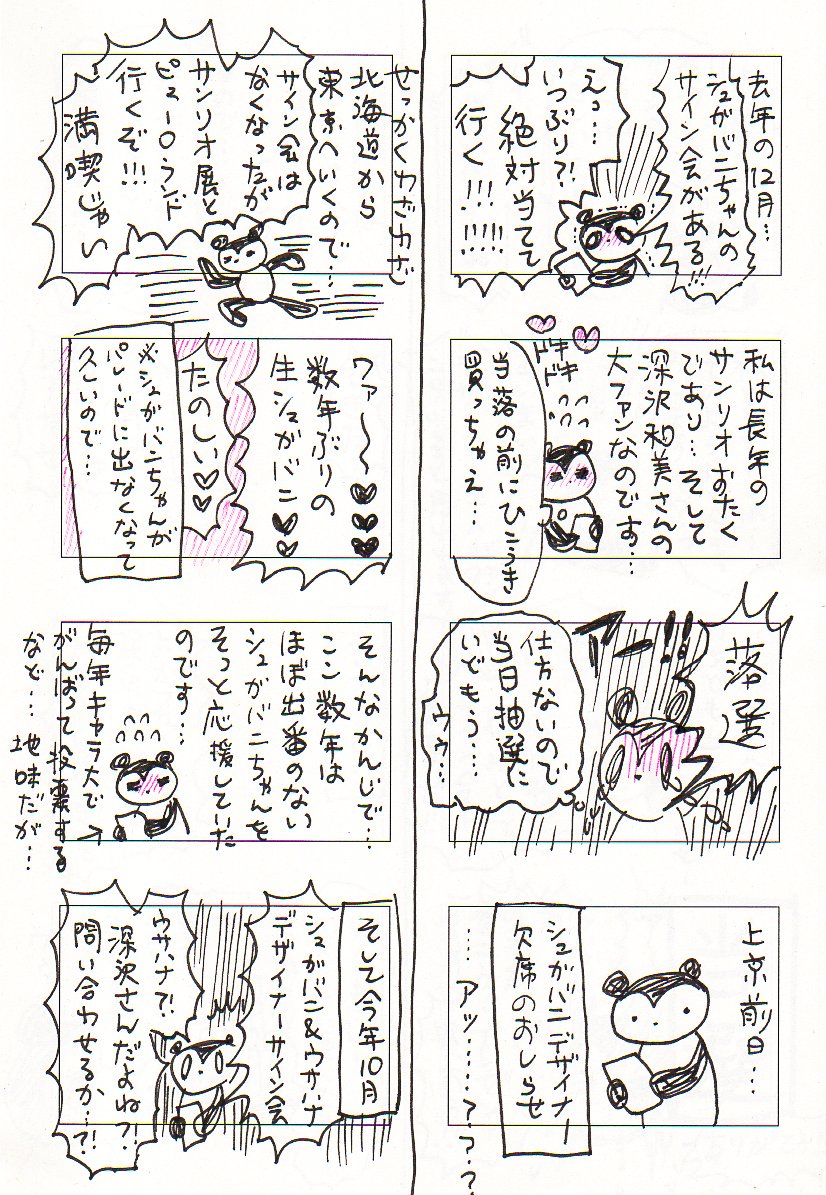 去年の12月…
シュガバニちゃんの
サイン会がある!!!
えっ…
いつぶり?!
絶対当てて
行く!!!
!!!!!
私は長年の
サンリオおたく
であり…そして
深沢和美さんの
大ファンなのです…
ドキ
ドキ
当落の前にひこうき
買っちゃえ…
落選
仕方ないので
当日抽選に
いどもう…
ウゥ…
上京前日…
シュガバニデザイナー
欠席のおしらせ
…アッ……???
せっかくわざわざ
北海道から
東京へいくので…
サイン会は
なくなったが
サンリオ展と
ピューロランド
行くぞ!!!
満喫じゃい
ワァ〜〜♥♥♥
数年ぶりの
生シュガバニ♥♡
たのしい♡♡
※シュガバニちゃんが
パレードに出なくなって
久しいので…
そんなかんじで…
ここ数年は
ほぼ出番のない
シュガバニちゃんを
そっと応援していた
のです…
毎年キャラ大で→
がんばって投票する
など…地味だが…
そして今年10月
シュガバニ&ウサハナ
デザイナーサイン会
ウサハナ?!
深沢さんだよね?!
問い合わせるか…?!